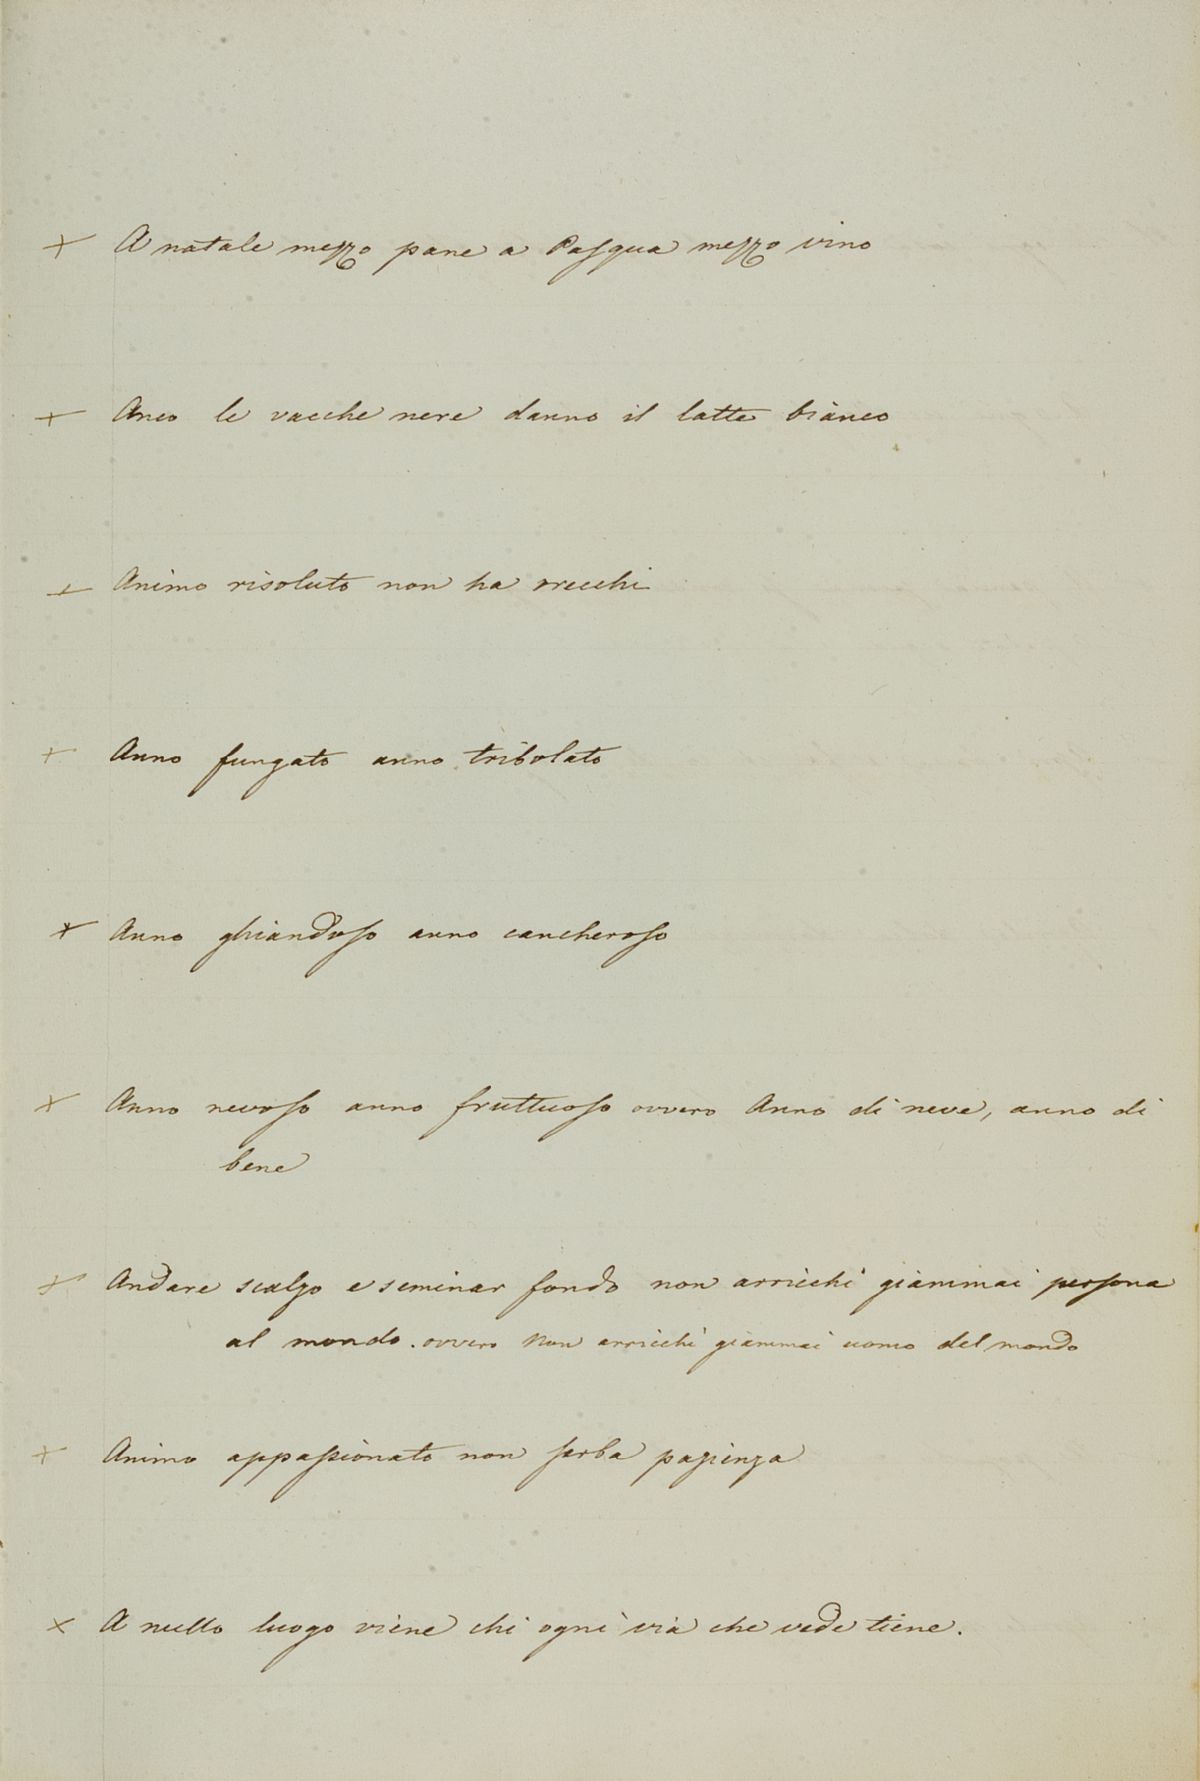 + A natale mezzo pane a Pasqua mezzo vino
+ Anco le vacche nere danno il latte bianco
+ Animo risoluto non ha orecchi
+ Anno fungato anno tribolato
+ Anno ghiandoso anno cancheroso
+ Anno nevoso anno fruttuoso ovvero Anno di neve, anno di
bene
+ Andare scalzo e seminar fondo non arricchì giammai persona
al mondo. ovvero Non arricchì giammai uomo del mondo
+ Animo appassionato non serba pazienza
+ A nullo luogo viene chi ogni via che vede tiene.